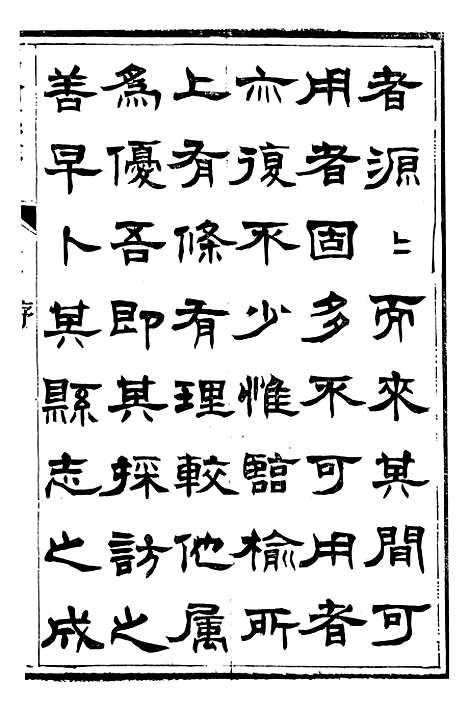 者源〻而來其間可
用者固多不可用者
亦復不少惟臨榆所
上有條有理較他属
爲優吾即其採訪之
善早卜其縣志之成
序